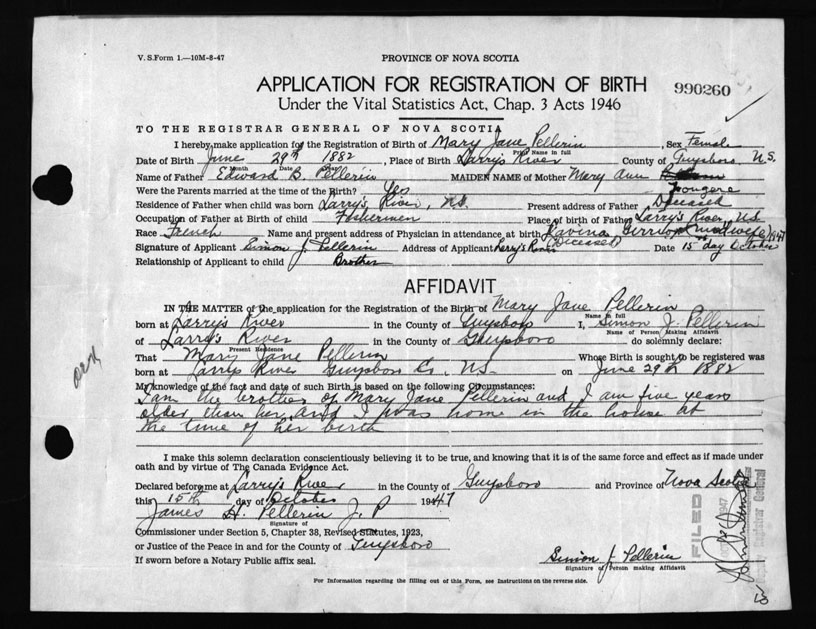 V. S. Form 1.—10M-8-47
PROVINCE OF NOVA SCOTIA
APPLICATION FOR REGISTRATION OF BIRTH
990260
Under the Vital Statistics Act, Chap. 3 Acts 1946
TO THE REGISTRAR GENERAL OF NOVA SCOTIA
I hereby make application for the Registration of Birth of Mary Jane Pellerin, Sex Female
Print Name in full
Date of Birth June 29th 1882, Place of Birth Larry's River County of Guysboro, N.S.
Month Date
Name of Father Edward B. Pellerin MAIDEN NAME of Mother Mary Ann
Fougere
Were the Parents married at the time of the Birth? Yes
Residence of Father when child was born Larry's River, N.S. Present address of Father Deceased
Occupation of Father at Birth of child Fishermen Place of birth of Father Larry's River, N.S
Race French Name and present address of Physician in attendance at birth Ravina midwife
(Deceased)
Signature of Applicant Simon J. Pellerin Address of Applicant Larry's River Date 15th day October 1947
Relationship of Applicant to child Brother
AFFIDAVIT
IN THE MATTER of the application for the Registration of the Birth of Mary Jane Pellerin
Name in full
born at Larry's River in the County of Guysboro I, Simon J. Pellerin
Name of Person Making Affidavit
of Larry's River in the County of Guysboro do solemnly declare:
Present Residence
That Mary Jane Pellerin Whose Birth is sought to be registered was
born at Larrys River Guysboro Co. N.S. on June 29th 1882
My knowledge of the fact and date of such Birth is based on the following Circumstances:
I am the brother of Mary Jane Pellerin and I am five years
older than her, and I was home in the house at
the time of her birth
I make this solemn declaration conscientiously believing it to be true, and knowing that it is of the same force and effect as if made under
oath and by virtue of The Canada Evidence Act.
Declared before me at Larry's River in the County of Guysboro and Province of Nova Scotia
this 15th day of October 1947
James H. Pellerin J. P
Signature of
Commissioner under Section 5, Chapter 38, Revised Statutes, 1923,
or Justice of the Peace in and for the County of Guysboro
If sworn before a Notary Public affix seal.
Simon J. Pellerin
Signature of Person making Affidavit
For Information regarding the filling out of this Form, see Instructions on the reverse side.
FILED
1947
Registrar General